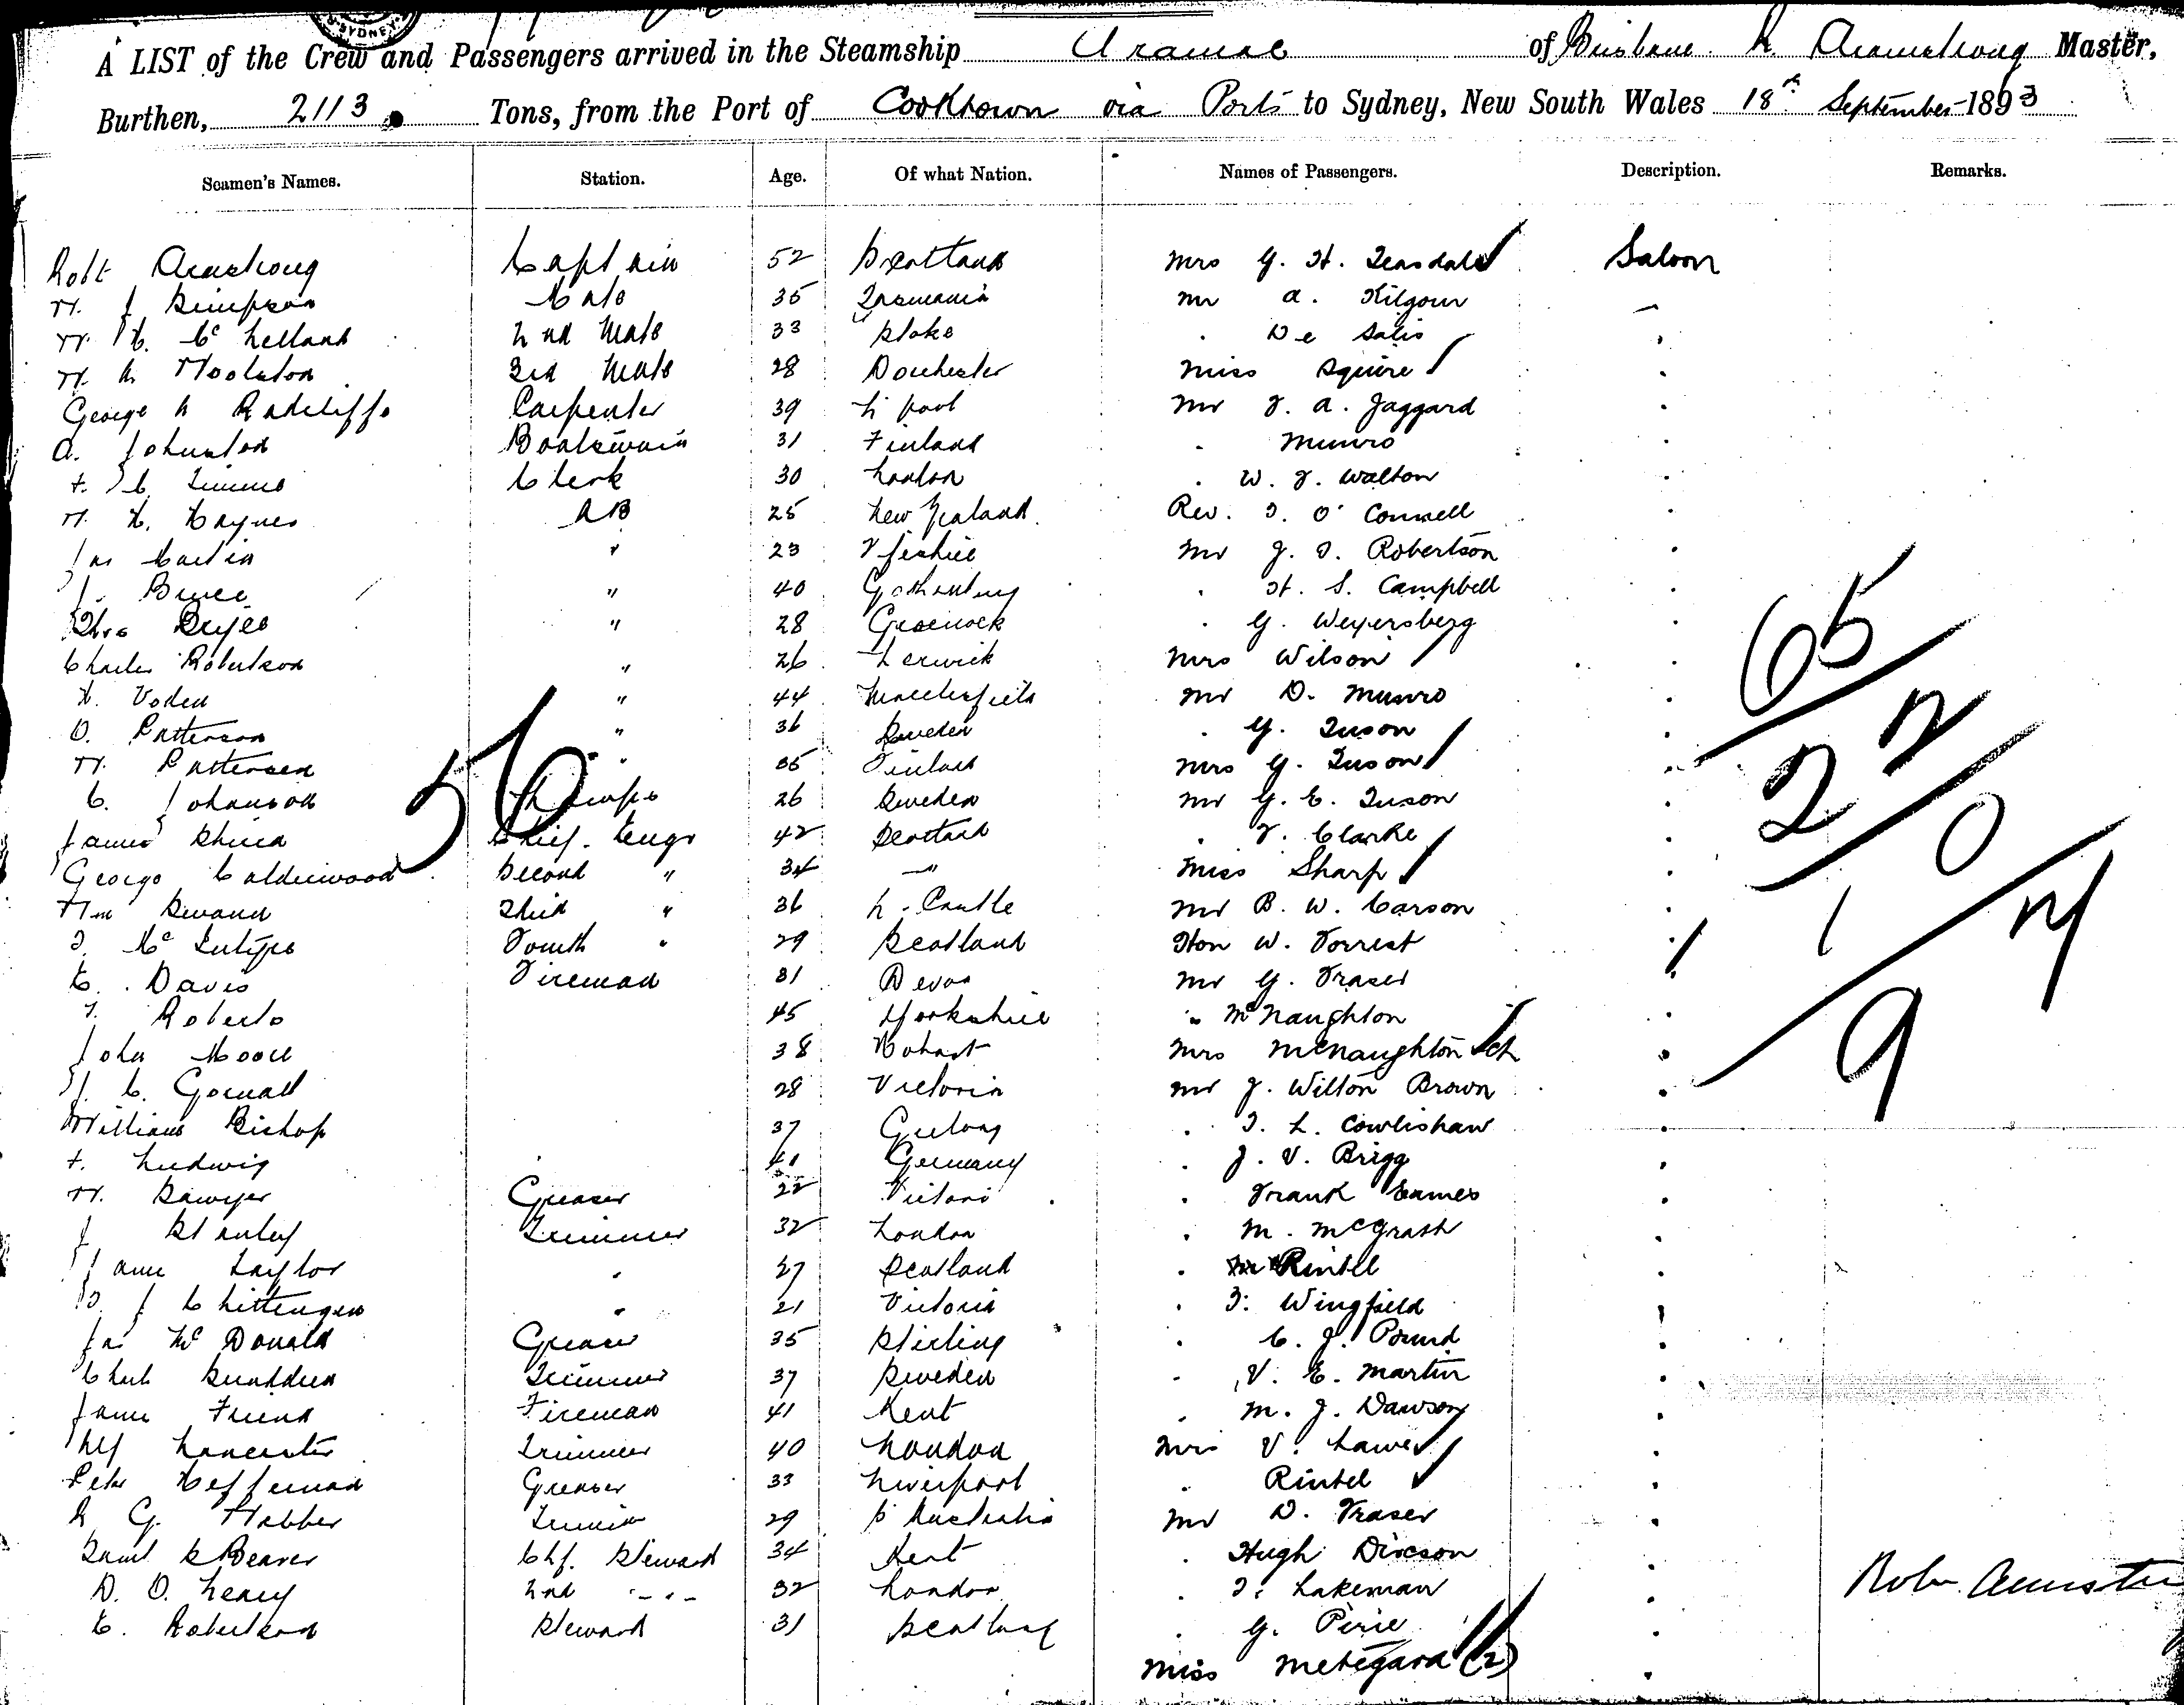 SYDNEY
A LIST of the Crew and Passengers arrived in the Steamship Aramac of Brisbane R. Armstrong Master,
Burthen, 2113 Tons, from the Port of Cooktown via Ports to Sydney, New South Wales 18th September 1893
Seamen's Names. Station. Age. Of what Nation. Names of Passengers. Description. Remarks.
Robt Armstrong Captain 52 Scotland Mrs G. H. Teasdale Saloon
W. J. Simpson Mate 35 Tasmania Mr A. Kilgour
W. H. Mc Lelland 2nd Mate 33 Stoke . De Salis
W. R. Woolston 3rd Mate 28 Dorchester Miss Squire
George H Radcliffe Carpenter 39 L'pool Mr F. A. Jaggard
A. Johnston Boatswain 31 Finland . Munro
F. C. Timms Clerk 30 London . W. F. Walton
W. H. Haynes AB 25 New Zealand Rev. T. O'Connell
Jas Martin " 23 Fifeshire Mr J. T. Robertson
J. Bruce " 40 Gothenburg . H. S. Campbell
Thos " 28 Greenock . G. Weyersberg
Charles Robertson " 26 Lerwick Mrs Wilson
H. Voden " 44 Macclesfield Mr D. Munro
O. Patterson " 36 Sweden . G. Tuson
W. Pattersen " 35 Finland Mrs G. Tuson
C. Johanson Lamps 26 Sweden Mr G. E. Tuson
James Shiea Chief Engr 42 Scotland . F. Clarke
George Calderwood Second " 34 " Miss Sharp
Wm Swann Third " 36 N. Castle Mr B. W. Carson
J. Mc Intype Fourth " 29 Scotland Hon W. Forrest
E. Davis Fireman 31 Devon Mr G. Fraser
T. Roberts 45 Yorkshire " McNaughton
John Moore 38 Hobart Mrs McNaughton & ch
J. C. Gornall 28 Victoria Mr J. Wilton Brown
William Bishop 37 Geelong . T. L. Cowlishaw
F. Ludwig 41 Germany . J. V. Brigg
W. Sawyer Greaser 22 Victoria . Frank Eames
J Stanley Trimmer 32 London . M. McGrath
James Taylor " 27 Scotland . Rintel
D. J Chittengen " 21 Victoria . T. Wingfield
Jas McDonald Greaser 35 Stirling . C. J. Pound
Charles Trimmer 37 Sweden . V. E. Martin
James Friend Fireman 41 Kent . M. J. Dawson
Alf Lancaster Trimmer 40 London Mrs V. Lawes
Peter Heffernan Greaser 33 Liverpool . Rintel
R G. Webber Trimmer 29 S Australia Mr D. Fraser
Saml S Beaver Chf. Steward 34 Kent . Hugh Dixson
D. O. Leary 2nd " 32 London . T. Lakeman
E. Robertson Steward 31 Scotland . G. Pirie
Miss Metegard (2)
56
65
22
20
1
9